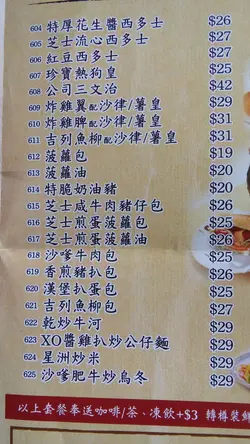 604 特厚花生醬西多士 $26
605 芝士流心西多士 $27
606 紅豆西多士 $27
607 珍寶熱狗皇 $25
608 公司三文治 $42
609 炸雞翼配沙律/薯皇 $29
610 炸雞脾配沙律/薯皇 $31
611 吉列魚柳配沙律/薯皇 $31
612 菠蘿包 $19
613 菠蘿油 $20
614 特脆奶油豬 $20
615 芝士咸牛肉豬仔包 $25
616 芝士煎蛋菠蘿包 $25
617 芝士煎蛋菠蘿油 $26
618 沙嗲牛肉包 $25
619 香煎豬扒包 $26
620 漢堡扒蛋包 $25
621 吉列魚柳包 $27
622 乾炒牛河 $29
623 XO醬雞扒炒公仔麵 $29
624 星洲炒米 $29
625 沙嗲肥牛炒烏冬 $29
以上套餐奉送咖啡/茶、凍飲+$3 轉樽裝鮮